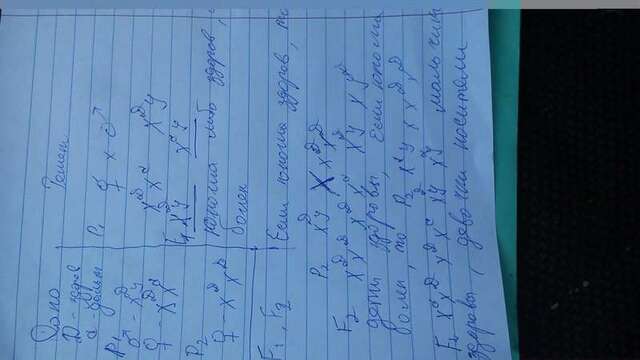 Дано
D - здоров
d - дальт
P₁
♂ - XᴰY
♀ - XᴰXᵈ
P₂
♀ - XᴰXᴰ
F₁, F₂
Решен
P₁ ♀ x ♂
XᴰXᵈ XᴰY
F₁ XᴰY XᵈY
юноша либо здоров,
болен
Если юноша здоров, то
P₂ XᴰY X XᴰXᴰ
F₂ XᴰXᴰ XᴰXᵈ XᴰY XYᴰ
дети здоровы, Если юноша
болен, то P₂ XᵈY x XᴰXᴰ
F₂ XᵈXᴰ XᴰXᵈ XᴰY XᴰY мальчик
здоровы, девочки носители